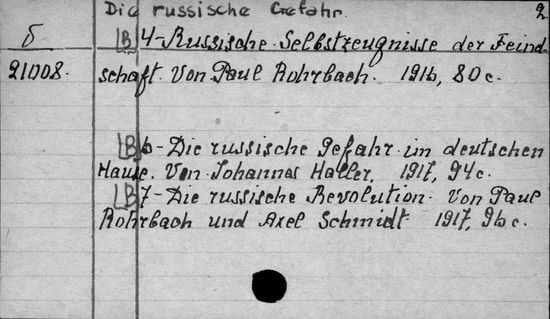 Die russische Gefahr. 2
б B 4-Russische Selbstzeugnisse der Feind-
21008. schaft. Von Paul Rohrbach. 1916, 80 c.
B 6-Die russische Gefahr im deutschen
Hause. Von Johannes Haller, 1917, 94 c.
B 7-Die russische Revolution. Von Paul
Rohrbach und Axel Schmidt. 1917, 96 c.